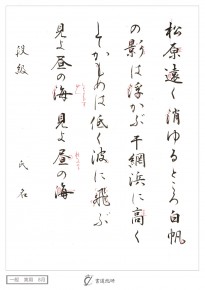 松原遠く消ゆるところ白帆
の影は浮かぶ干網浜に高く
してかもめは低く波に飛ぶ
見よ昼の海見よ昼の海
段級 氏名
一般 8月